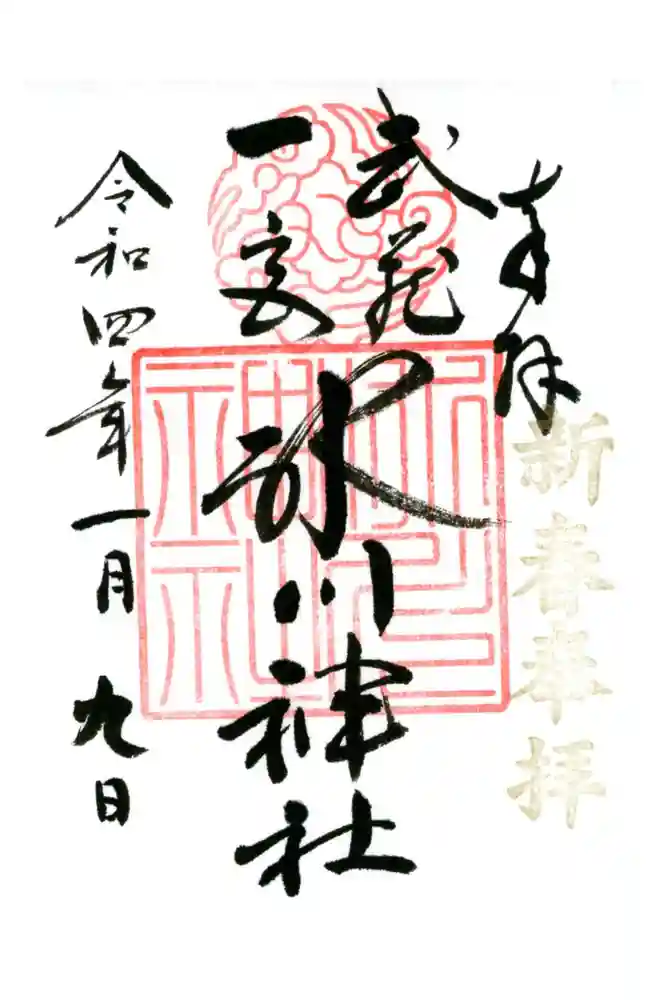 奉拝
新春奉拝
武蔵
一宮
氷川神社
令和四年一月九日